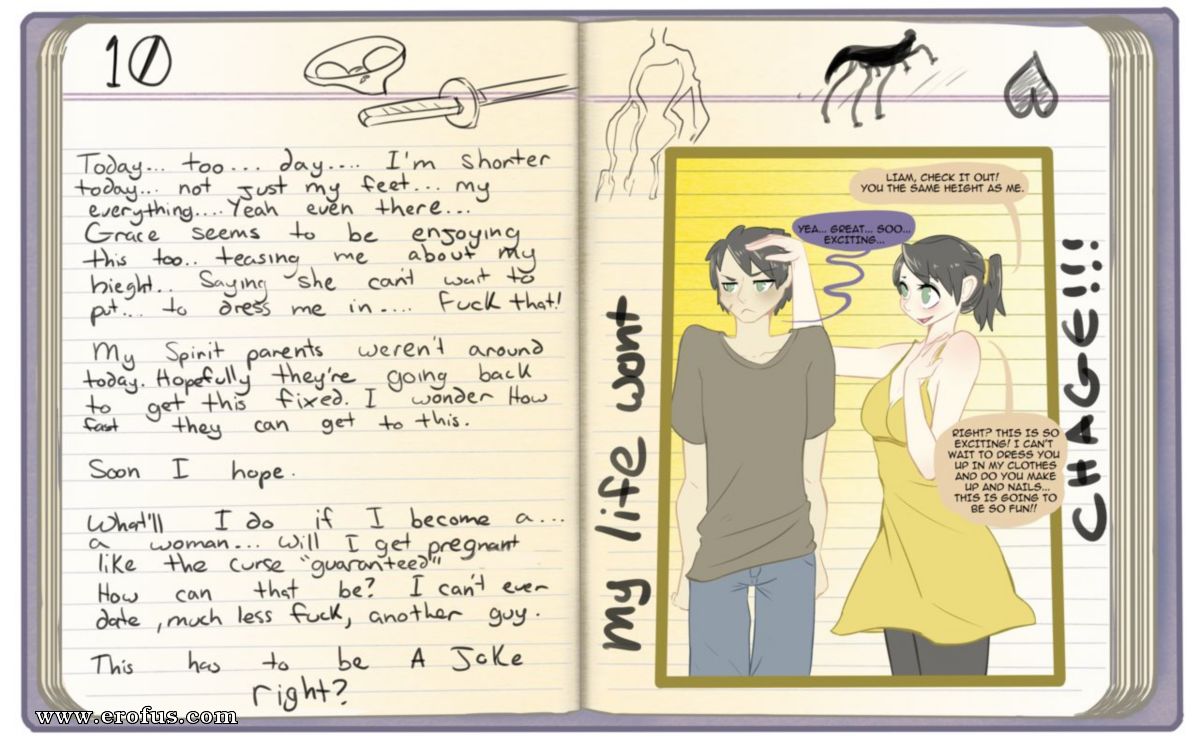 10
Today... too... day.... I'm shorter
today... not just my feet... my
everything.... Yeah even there...
Grace seems to be enjoying
this too.. teasing me about my
hieght.. Saying she can't wait to
put... to dress me in.... Fuck that!
My Spirit parents weren't around
today. Hopefully they're going back
to get this fixed. I wonder How
fast they can get to this.
Soon I hope.
What'll I do if I become a...
a woman... will I get pregnant
like the curse "guaranteed"
How can that be? I can't ever
date, much less fuck, another guy.
This has to be A Joke
right?
my life wont
LIAM, CHECK IT OUT!
YOU THE SAME HEIGHT AS ME.
YEA... GREAT... SOO...
EXCITING...
RIGHT? THIS IS SO
EXCITING! I CAN'T
WAIT TO DRESS YOU
UP IN MY CLOTHES
AND DO YOU MAKE
UP AND NAILS...
THIS IS GOING TO
BE SO FUN!!
CHAGE!!!!
www.erofus.com